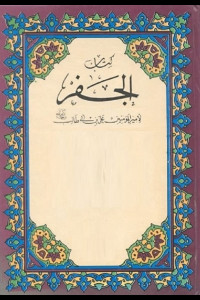 كتاب
الجفر
لأمير المؤمنين علي بن أبي طالب